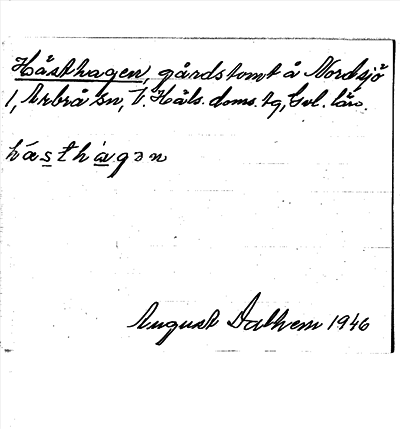 Hästhagen, gårdstomt å Nordsjö
1, Arbrå sn, V. Häls. doms. tg, Gvl. län.
hásthàgən
August Dalhem 1946